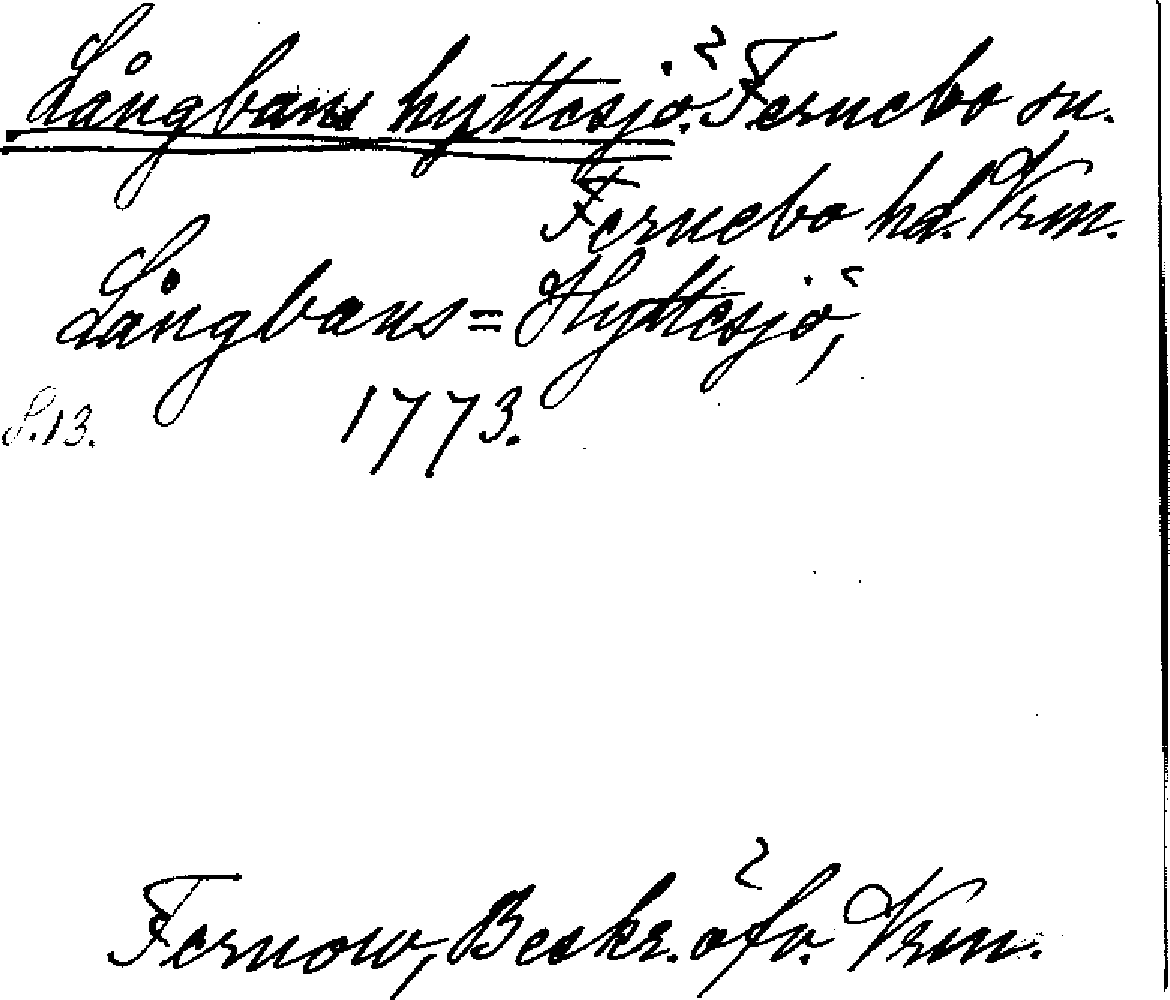 Långbans hyttesjö. Fernebo sn.
Fernebo hd. Vrm.
Långbans=Hyttesjö,
S.13. 1773.
Fernow, Beskr. öfv. Vrm.